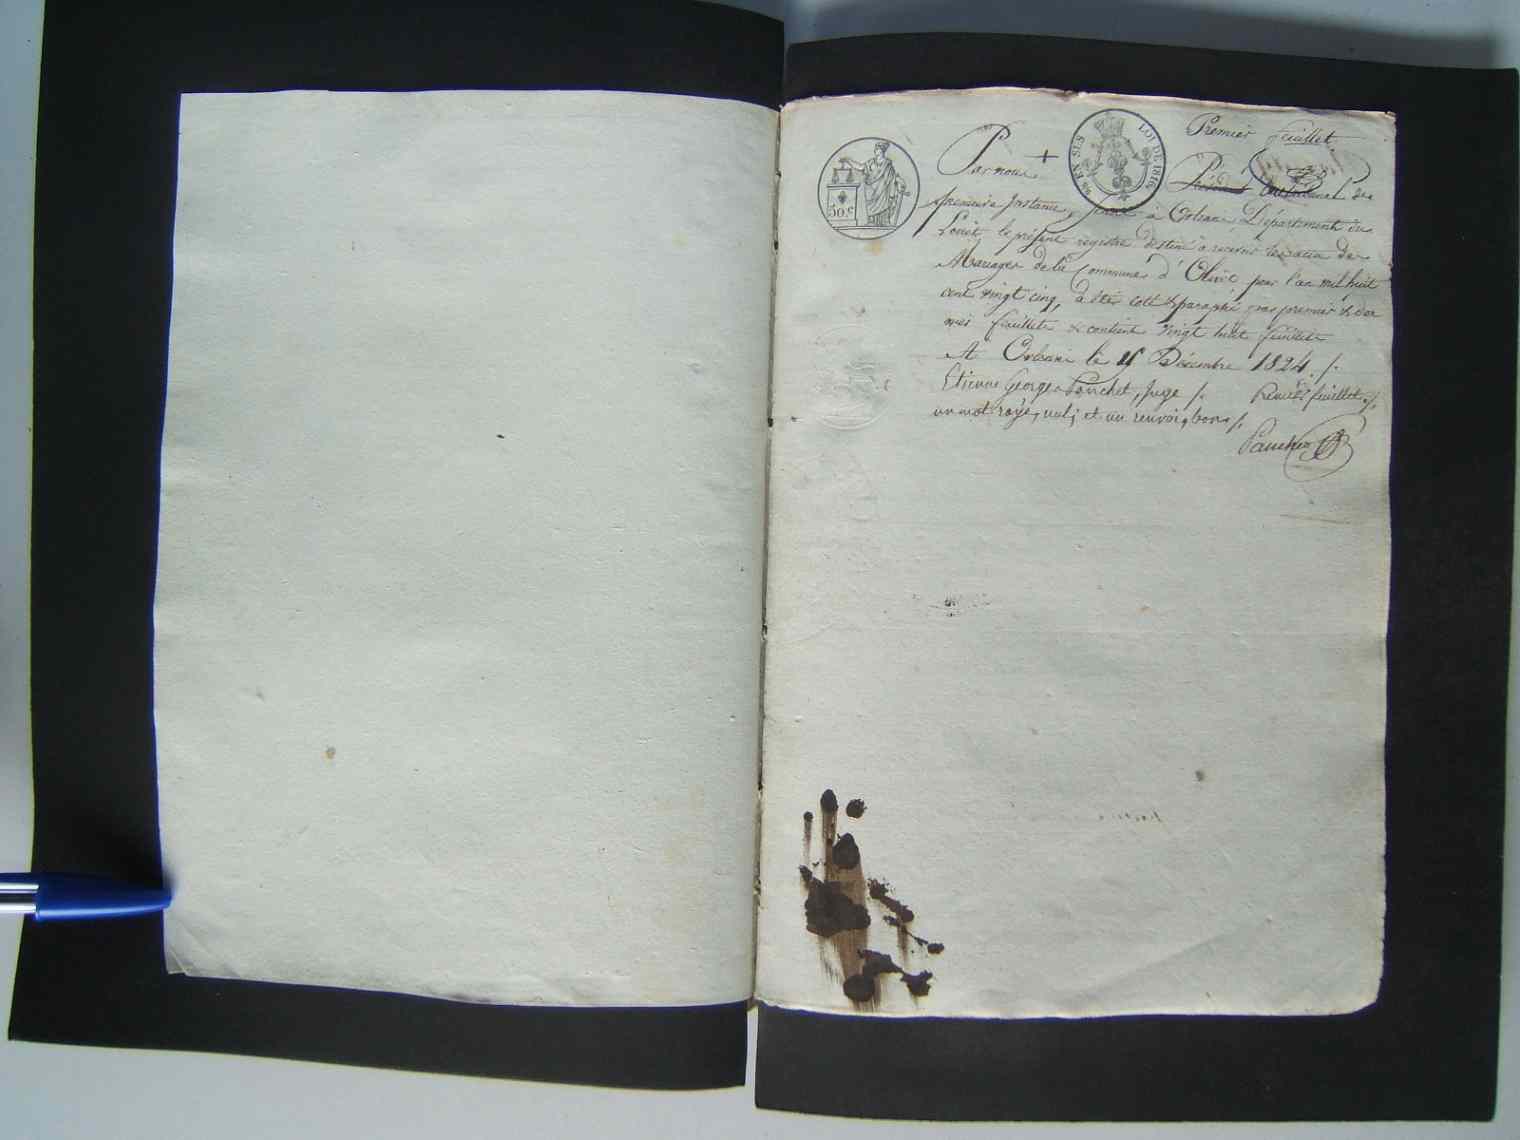 Premier feuillet.
50 c
EN SUS LOI DE 1816
Par nous + Président du tribunal de
première Instance, séant à Orléans, Département du
Loiret, le présent registre destiné à recevoir les actes de
Mariages de la Commune d'Olivet pour l'an mil huit
cent vingt cinq, a été coté & paraphé par premier & der
nier feuillets & contient vingt huit feuillets
A Orléans le Décembre 1824 ./.
Etienne George Pouchet, Juge /. Premier feuillet ./.
un mot rayé, nul; et un renvoi, bon ./.